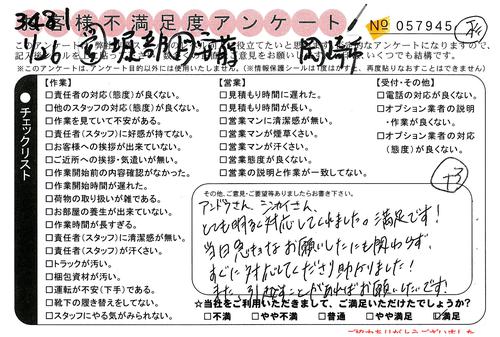 お客様不満足度アンケート
No 057945
※このアンケートは、アンケート目的以外には使用いたしません。
チェックリスト
【作業】
□責任者の対応(態度)が良くない。
□他のスタッフの対応(態度)が良くない。
□作業を見ていて不安がある。
□責任者(スタッフ)に好感が持てない。
□お客様への挨拶が出来ていない。
□ご近所への挨拶・気遣いが無い。
□作業開始前の内容確認がなかった。
□作業開始時間が遅れた。
□荷物の取り扱いが雑である。
□お部屋の養生が出来ていない。
□作業時間が長すぎる。
□責任者(スタッフ)に清潔感が無い。
□責任者(スタッフ)が汗くさい。
□トラックが汚い。
□梱包資材が汚い。
□運転が不安(下手)である。
□靴下の履き替えをしてない。
□スタッフにやる気がみられない。
【営業】
□見積もり時間に遅れた。
□見積もり時間が長い。
□営業マンに清潔感が無い。
□営業マンが煙草くさい。
□営業マンが汗くさい。
□営業態度が良くない。
□営業の説明と作業が一致してない。
【受付・その他】
□電話の対応が良くない。
□オプション業者の説明
・作業が良くない。
□オプション業者の対応
(態度)が良くない。
その他、ご意見・ご要望等ありましたらお書き下さい。
アンドウさん、シンカイさん、
とても明るく対応してくれました。満足です!
当日急きょなお願いしたにも関わらず、
すぐに対応してくださり助かりました!
また、引越すことがあればお願いしたいです!
☆当社をご利用いただきまして、ご満足いただけたでしょうか?
□不満 □やや不満 □普通 □やや満足 □満足
ご協力ありがとうございました